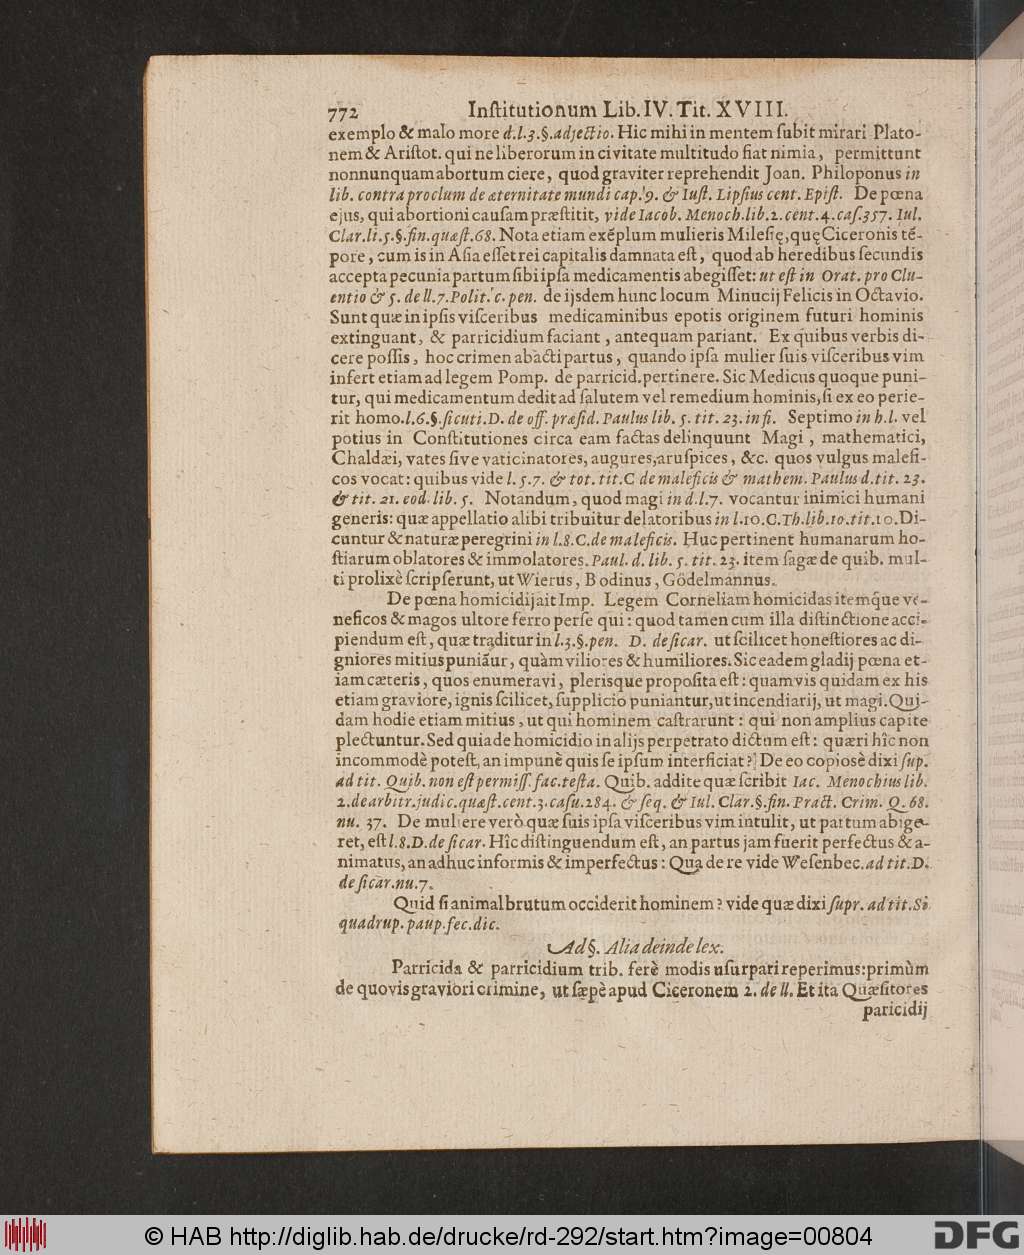 772 Inſtitutionum Lib. IV. Tit. XVIII.
exemplo & malo more d.l.3.§.adjectio. Hic mihi in mentem ſubit mirari Plato-
nem & Ariſtot. qui ne liberorum in civitate multitudo fiat nimia, permittunt
nonnunquam abortum ciere, quod graviter reprehendit Joan. Philoponus in
lib. contra proclum de æternitate mundi cap. 9. & Iuſt. Lipſius cent. Epiſt. De pœna
ejus, qui abortioni cauſam præſtitit, vide Iacob. Menoch. lib. 2. cent. 4. caſ. 357. Iul.
Clar. li. 5. §. fin. quæſt. 68. Nota etiam exẽplum mulieris Mileſię, quę Ciceronis tẽ-
pore, cum is in Aſia eſſet rei capitalis damnata eſt, quod ab heredibus ſecundis
accepta pecunia partum ſibi ipſa medicamentis abegiſſet: ut eſt in Orat. pro Clu-
entio & 5. de ll. 7. Polit. c. pen. de ijsdem hunc locum Minucij Felicis in Octavio.
Sunt quæ in ipſis viſceribus medicaminibus epotis originem futuri hominis
extinguant, & parricidium faciant, antequam pariant. Ex quibus verbis di-
cere poſſis, hoc crimen abacti partus, quando ipſa mulier ſuis viſceribus vim
infert etiam ad legem Pomp. de parricid. pertinere. Sic Medicus quoque puni-
tur, qui medicamentum dedit ad ſalutem vel remedium hominis, ſi ex eo perie-
rit homo. l. 6. §. ſicuti. D. de off. præſid. Paulus lib. 5. tit. 23. in fi. Septimo in h.l. vel
potius in Conſtitutiones circa eam factas delinquunt Magi, mathematici,
Chaldæi, vates ſive vaticinatores, augures, aruſpices, &c. quos vulgus malefi-
cos vocat: quibus vide l. 5. 7. & tot. tit. C de maleficis & mathem. Paulus d. tit. 23.
& tit. 21. eod. lib. 5. Notandum, quod magi in d.l. 7. vocantur inimici humani
generis: quæ appellatio alibi tribuitur delatoribus in l. 10. C. Th. lib. 10. tit. 10. Di-
cuntur & naturæ peregrini in l. 8. C. de maleficis. Huc pertinent humanarum ho-
ſtiarum oblatores & immolatores. Paul. d. lib. 5. tit. 23. item ſagæ de quib. mul-
ti prolixè ſcripſerunt, ut Wierus, Bodinus, Gödelmannus.
De pœna homicidij ait Imp. Legem Corneliam homicidas itemq́ue ve-
neficos & magos ultore ferro perſe qui: quod tamen cum illa diſtinctione acci-
piendum eſt, quæ traditur in l. 3. §. pen. D. de ſicar. ut ſcilicet honeſtiores ac di-
gniores mitius puniãur, quàm viliores & humiliores. Sic eadem gladij pœna et-
iam cæteris, quos enumeravi, plerisque propoſita eſt: quamvis quidam ex his
etiam graviore, ignis ſcilicet, ſupplicio puniantur, ut incendiarij, ut magi. Qui-
dam hodie etiam mitius, ut qui hominem caſtrarunt: qui non amplius capite
plectuntur. Sed quia de homicidio in alijs perpetrato dictum eſt: quæri hîc non
incommodè poteſt, an impunè quis ſe ipſum interficiat? De eo copiosè dixi ſup.
ad tit. Quib. non eſt permiſſ. fac. teſta. Quib. addite quæ ſcribit Iac. Menochius lib.
2. de arbitr. judic. quæſt. cent. 3. caſu. 284. & ſeq. & Iul. Clar. §. fin. Pract. Crim. Q. 68.
nu. 37. De muliere verò quæ ſuis ipſa viſceribus vim intulit, ut partum abige-
ret, eſt l. 8. D. de ſicar. Hîc diſtinguendum eſt, an partus jam fuerit perfectus & a-
nimatus, an adhuc informis & imperfectus: Qua de re vide Weſenbec. ad tit. D.
de ſicar. nu. 7.
Quid ſi animal brutum occiderit hominem? vide quæ dixi ſupr. ad tit. Si
quadrup. paup. fec. dic.
Ad §. Alia deinde lex.
Parricida & parricidium trib. ferè modis uſurpari reperimus: primùm
de quovis graviori crimine, ut ſæpè apud Ciceronem 2. de ll. Et ita Quæſitores
paricidij
© HAB http://diglib.hab.de/drucke/rd-292/start.htm?image=00804
DFG